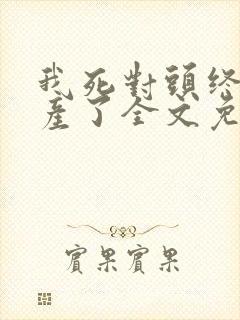 我死對頭終
產了全文免
賓果賓果